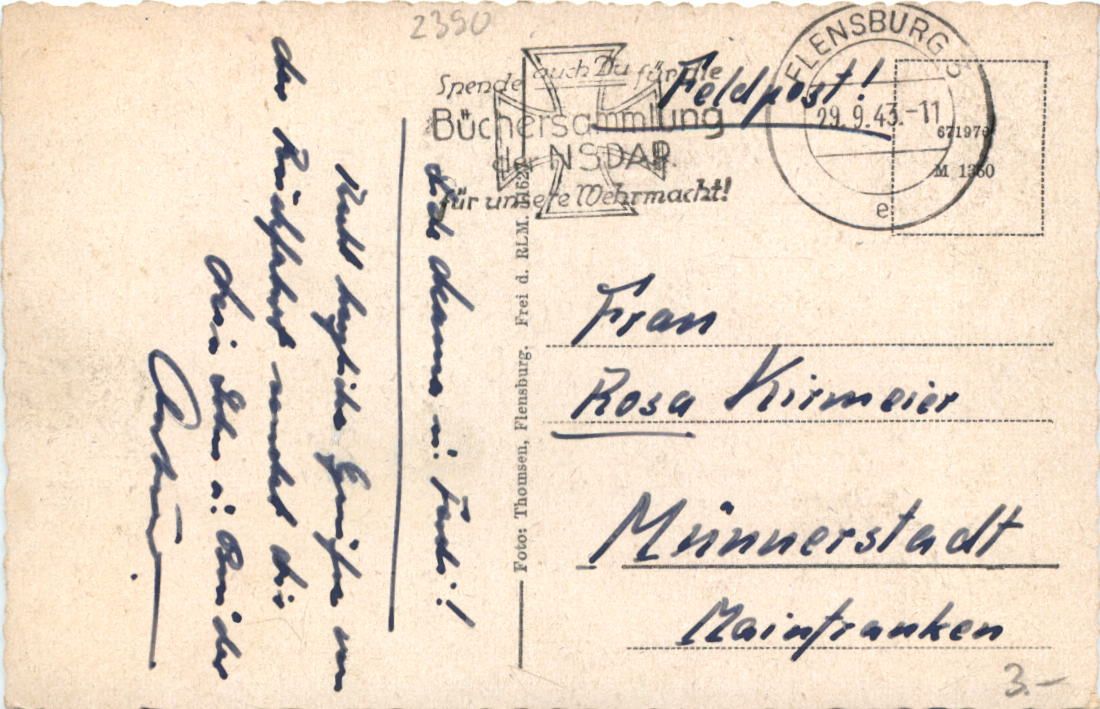 2390
Spende auch Du für die
Büchersammlung
der NSDAP.
für unsere Wehrmacht!
Feldpost!
FLENSBURG
29.9.43.-11
e
671976
M 1360
Liebe Mama u. Fredi!
Recht herzliche Grüße von
der Rückfahrt sendet Dir
Dein Sohn u. Bruder
Artur
Foto: Thomsen, Flensburg. Frei d. RLM.
Frau
Rosa Kirmeier
Münnerstadt
Mainfranken
3.-